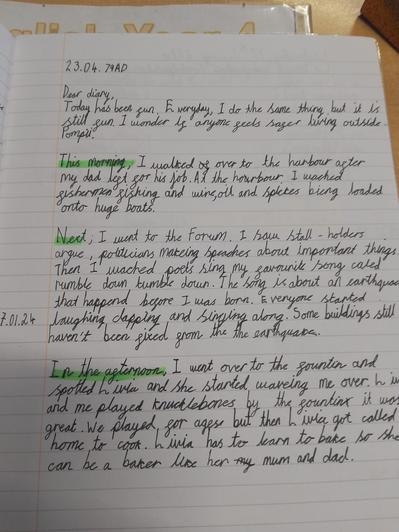 English Year 4
23.04.79AD
Dear diary,
Today has been fun. Everyday, I do the same thing but it is
still fun I wonder if anyone feels safer living outside
Pompii.
This morning, I walked over to the harbour after
my dad left for his job. At the hourbour I wached
fishermen fishing and wine, oil and spices bieng loaded
onto huge boats.
Next, I went to the Forum. I saw stall-holders
argue, politicians makeing speaches about important things.
Then I wached poets sing my favourite song caled
rumble down tumble down. The song is about an earthquake
that happend before I was born. Everyone started
7.01.24
laughing, clapping and singing along. Some buildings still
haven't been fixed from the the earthquake.
In the afternoon, I went over to the fountin and
spotted Livia and she started waveing me over. Livi
and me played knucklebones by the fountinx it was
great. We played for ages but then Livia got called
home to cook. Livia has to learn to bake so she
can be a baker like her my mum and dad.